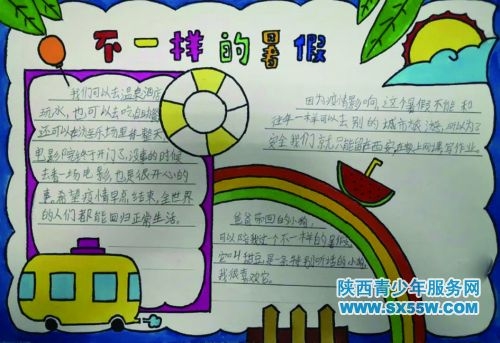 不一样的暑假
我们可以去温泉酒店
玩水，也可以去吃自助餐
还可以在游乐场里待一整天
电影院终于开门了，没事的时候
去看一场电影，也是很开心的
事。希望疫情早点结束，全世界
的人们都能回归正常生活。
因为疫情影响，这个暑假不能和
往年一样可以去别的城市旅游，所以为了
安全我们就只能留在西安，在家上网课写作业。
爸爸带回的小狗，
可以陪我过一个不一样的暑假。
它叫甜豆是一条特别听话的小狗
我很喜欢它。
陕西青少年服务网
www.sx55w.com